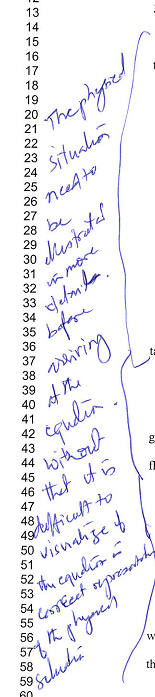 12
13
14
15
16
17
18
19
20
21
22
23
24
25
26
27
28
29
30
31
32
33
34
35
36
37
38
39
40
41
42
43
44
45
46
47
48
49
50
51
52
53
54
55
56
57
58
59
60
The physical
situation
need to
be
illustrated
in more
details.
before
arriving
at the
equation.
without
that it is
difficult to
visualize if
the equation is
correct representation
of the physical
situation
t
ta
g
fl
w
th